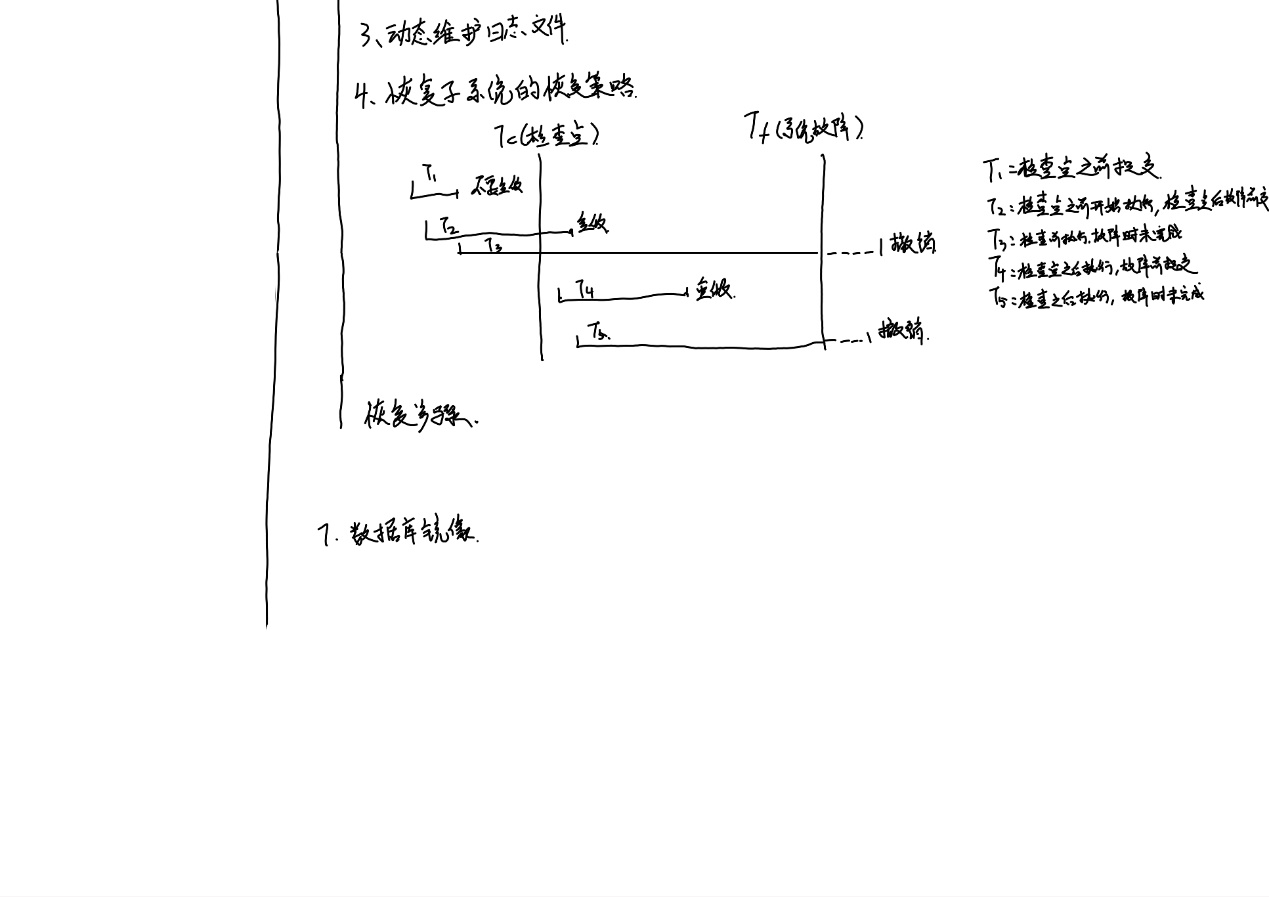 3、动态维护日志文件.
4、恢复子系统的恢复策略.
Tc(检查点)
Tf(系统故障)
T1
不要重做
T2
重做
T3
撤销
T4
重做.
T5.
撤销.
T1:检查点之前提交.
T2:检查点之前开始执行,检查点后故障前提交
T3:检查前执行.故障时未完成
T4:检查点之后执行,故障前提交
T5:检查之后执行,故障时未完成
恢复步骤.
7.数据库镜像.